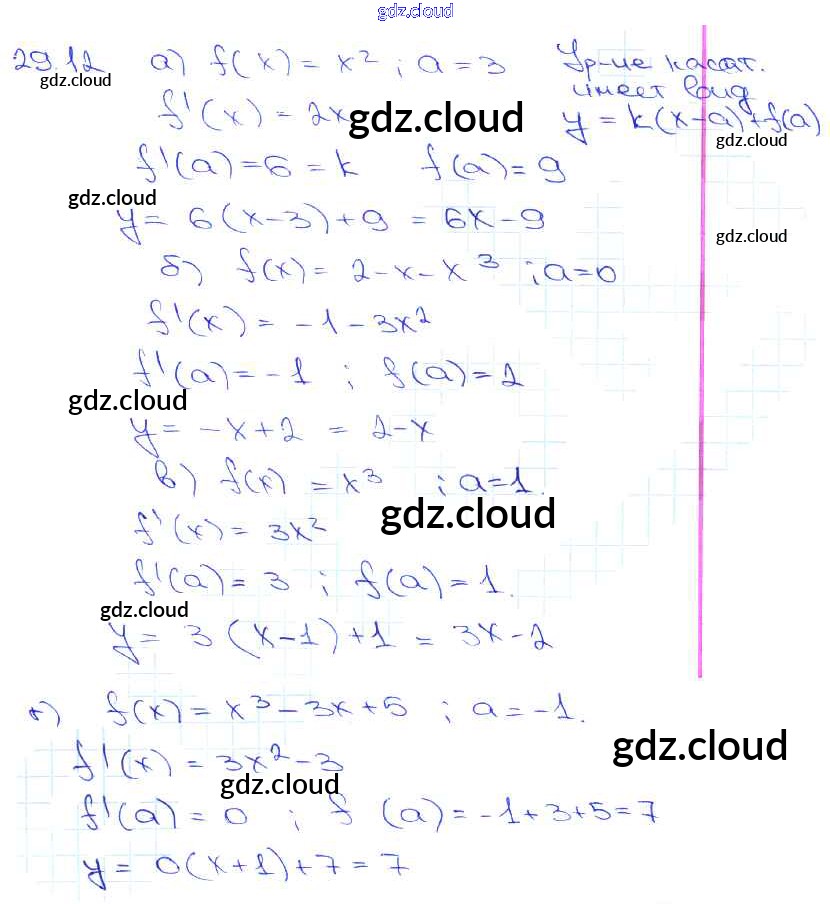 gdz.cloud
29.12 а) f(x) = x² ; a = 3 Ур-ие касат.
gdz.cloud имеет вид
f'(x) = 2x gdz.cloud y = k(x-a)+f(a)
gdz.cloud
f'(a) = 6 = k f(a) = 9
gdz.cloud
y = 6(x-3)+9 = 6x-9
gdz.cloud
б) f(x) = 2-x-x³ ; a=0
f'(x) = -1-3x²
f'(a) = -1 ; f(a) = 2
gdz.cloud
y = -x+2 = 2-x
в) f(x) = x³ ; a=1.
gdz.cloud
f'(x) = 3x²
f'(a) = 3 ; f(a) = 1.
gdz.cloud
y = 3(x-1)+1 = 3x-2
г) f(x) = x³-3x+5 ; a = -1.
gdz.cloud
f'(x) = 3x²-3
gdz.cloud
f'(a) = 0 ; f (a) = -1+3+5=7
y = 0(x+1)+7 = 7